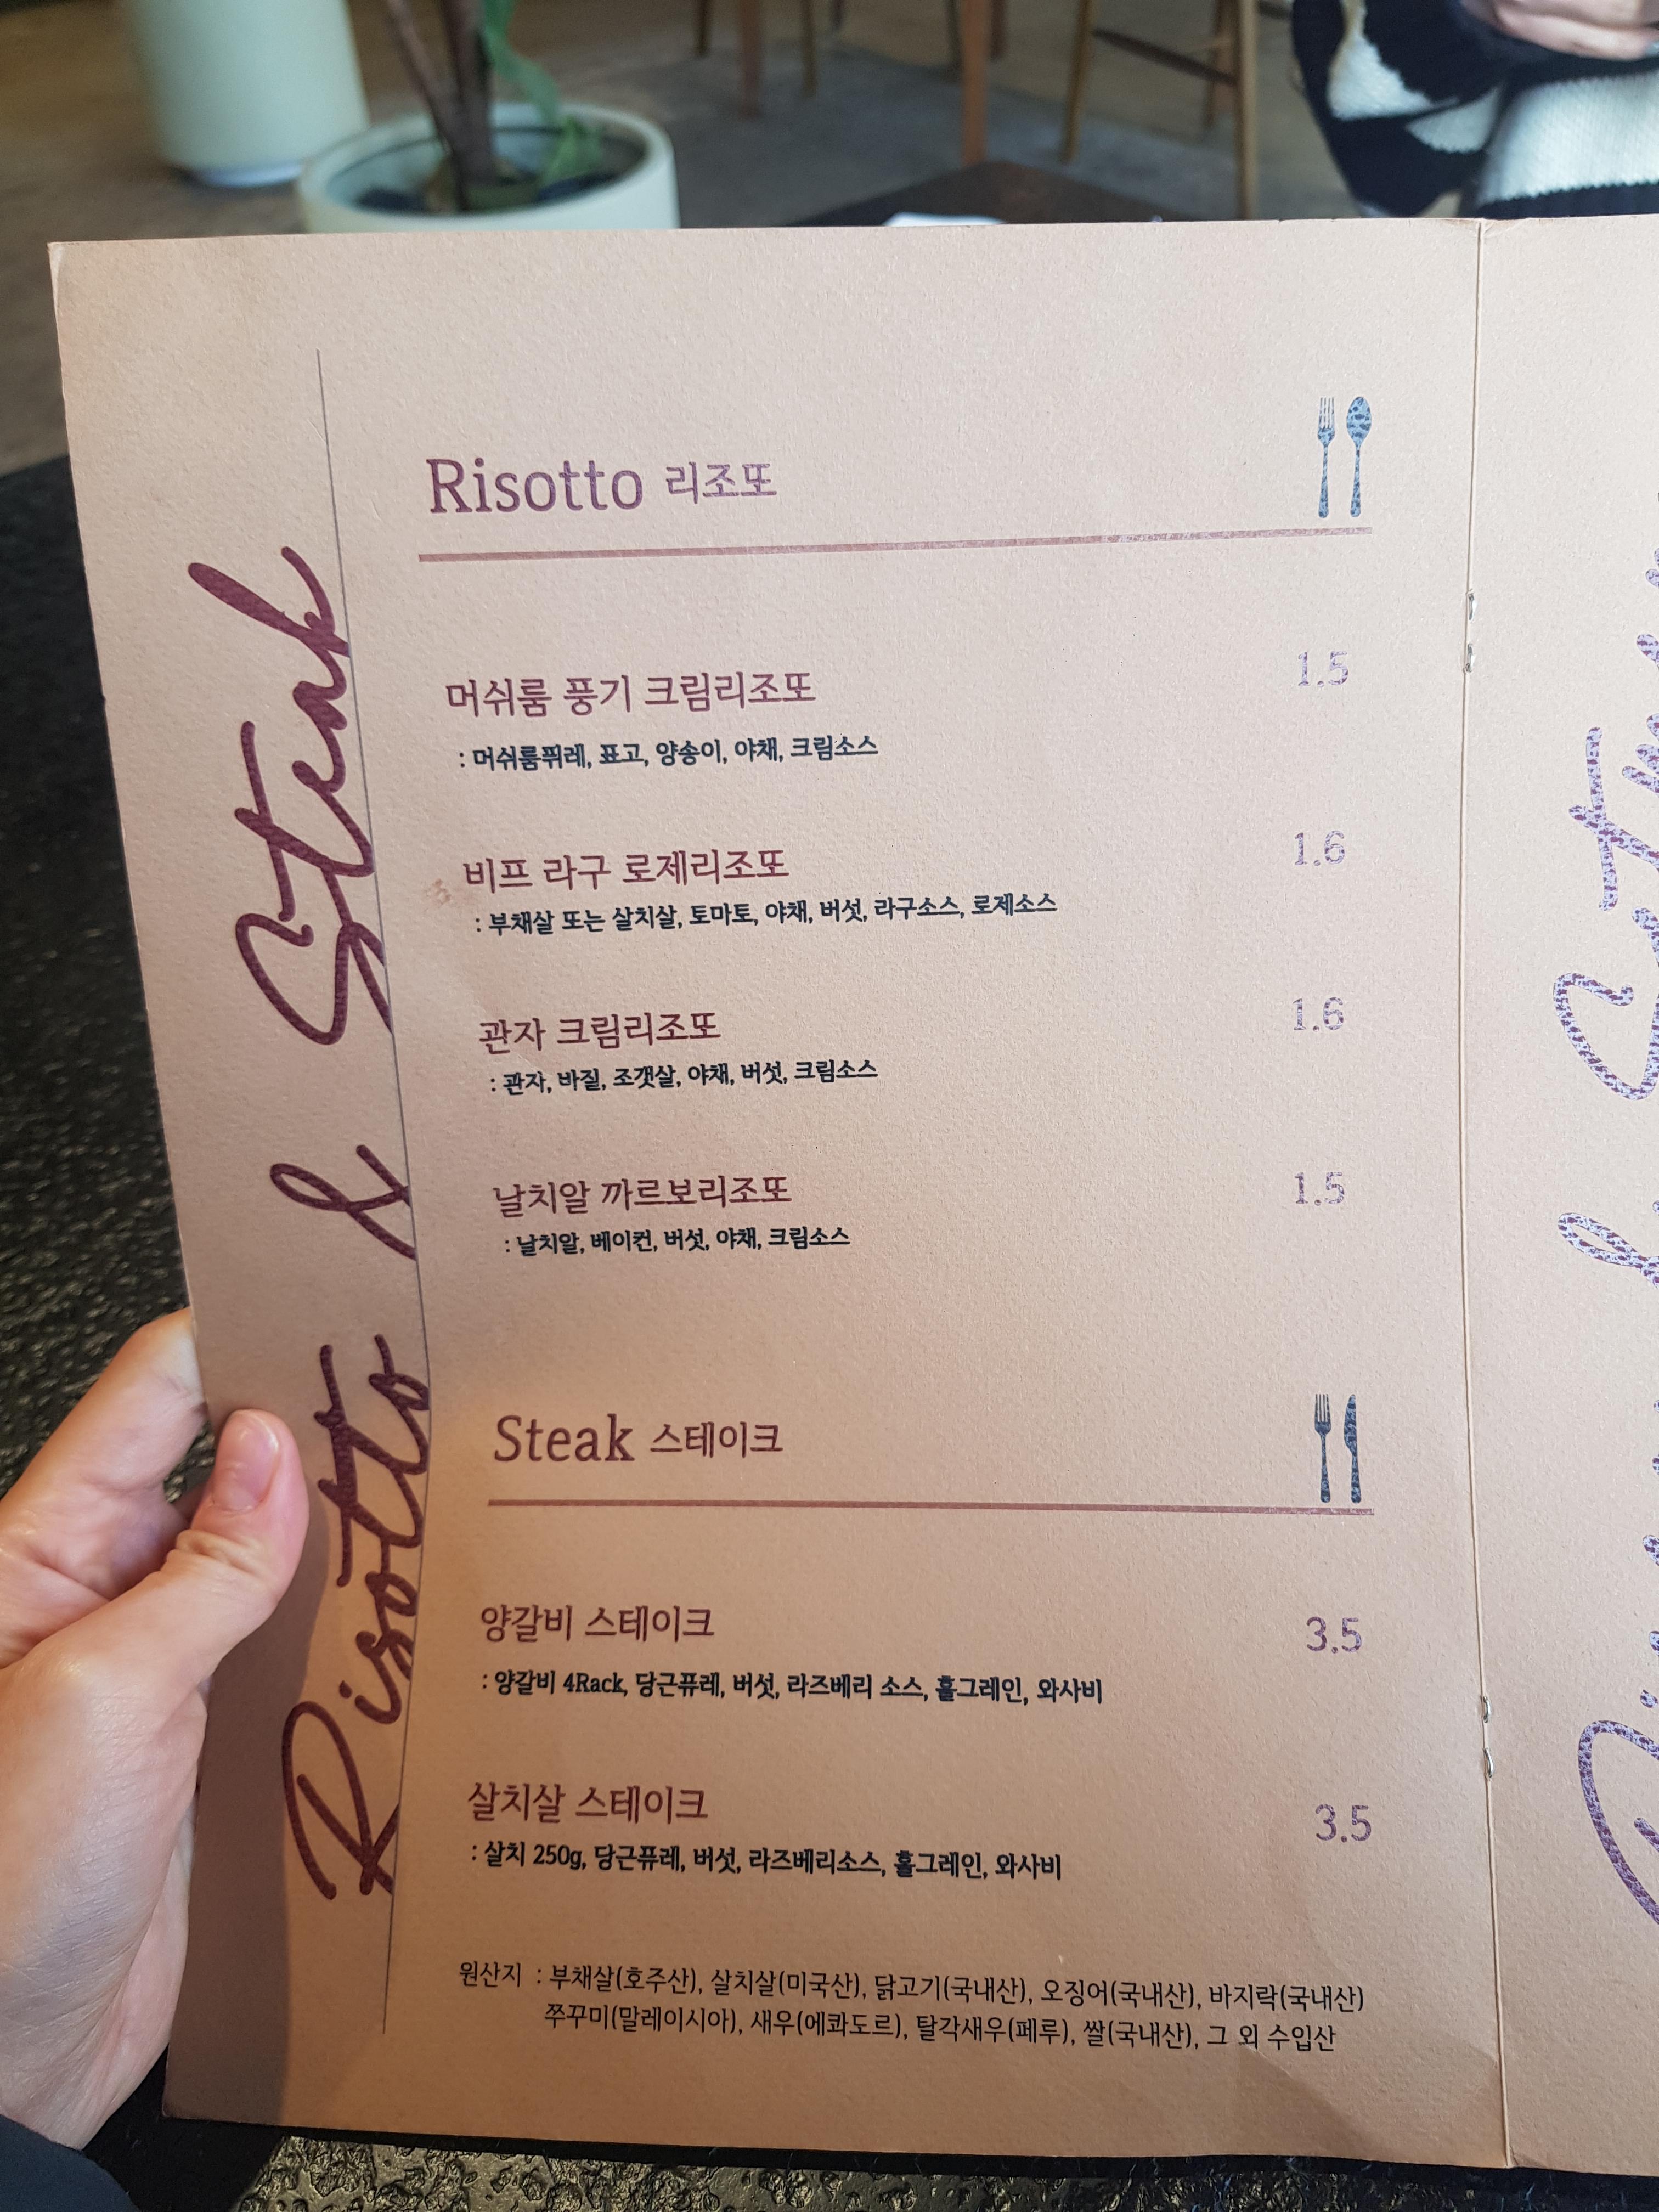 Risotto & Steak
Risotto 리조또
머쉬룸 풍기 크림리조또 1.5
: 머쉬룸퓌레, 표고, 양송이, 야채, 크림소스
비프 라구 로제리조또 1.6
: 부채살 또는 살치살, 토마토, 야채, 버섯, 라구소스, 로제소스
관자 크림리조또 1.6
: 관자, 바질, 조갯살, 야채, 버섯, 크림소스
날치알 까르보리조또 1.5
: 날치알, 베이컨, 버섯, 야채, 크림소스
Steak 스테이크
양갈비 스테이크 3.5
: 양갈비 4Rack, 당근퓨레, 버섯, 라즈베리 소스, 홀그레인, 와사비
살치살 스테이크 3.5
: 살치 250g, 당근퓨레, 버섯, 라즈베리소스, 홀그레인, 와사비
원산지 : 부채살(호주산), 살치살(미국산), 닭고기(국내산), 오징어(국내산), 바지락(국내산)
쭈꾸미(말레이시아), 새우(에콰도르), 탈각새우(페루), 쌀(국내산), 그 외 수입산